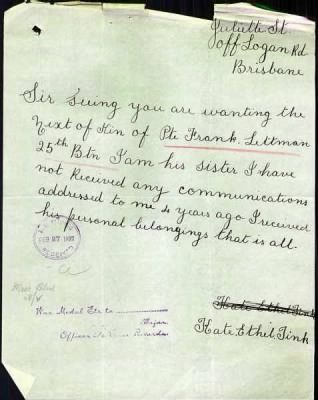 Juliette St
Off Logan Rd
Brisbane
Sir Seing you are wanting the
Next of Kin of Pte Frank. Lettman
25th Btn I am his Sister I have
not Received any communications
addressed to me 4 years ago I received
his personal belongings that is all.
War Medal Etc to
Major
Officer i/c Base Records
Kate Ethel Tink
Kate Ethel Tink